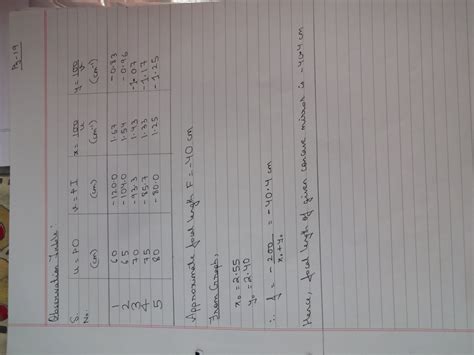 Pg-19
Observation Table:
S. No. u = PO (cm) v = PI (cm) x = 100/u (cm⁻¹) y = 100/v (cm⁻¹)
1 60 -120.0 1.67 -0.83
2 65 -104.0 1.54 -0.96
3 70 -93.3 1.43 -1.07
4 75 -85.7 1.33 -1.17
5 80 -80.0 1.25 -1.25
Approximate focal length F = -40 cm
From Graph,
x₀ = 2.55
y₀ = 2.40
∴ f = -200/(x₀ + y₀) = -40.4 cm
Hence, focal length of given concave mirror is -40.4 cm